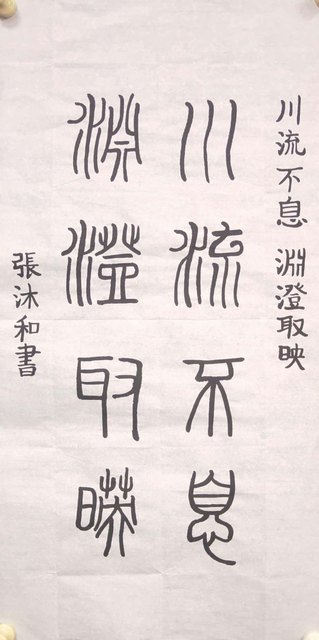 川流不息 淵澄取映
川流不息
淵澄取映
張沐和書